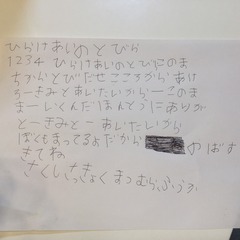 ひらけあいのとびら
1234 ひらけあいのとびにのま
ちからとびだせこころからあけ
うーきみとあいたいからーこのま
まーいくんだほんとうにありが
とーきみとーあいたいから
ぼくもまってるよだから のばす
きてね
さくしさっきょくまつむらふうか